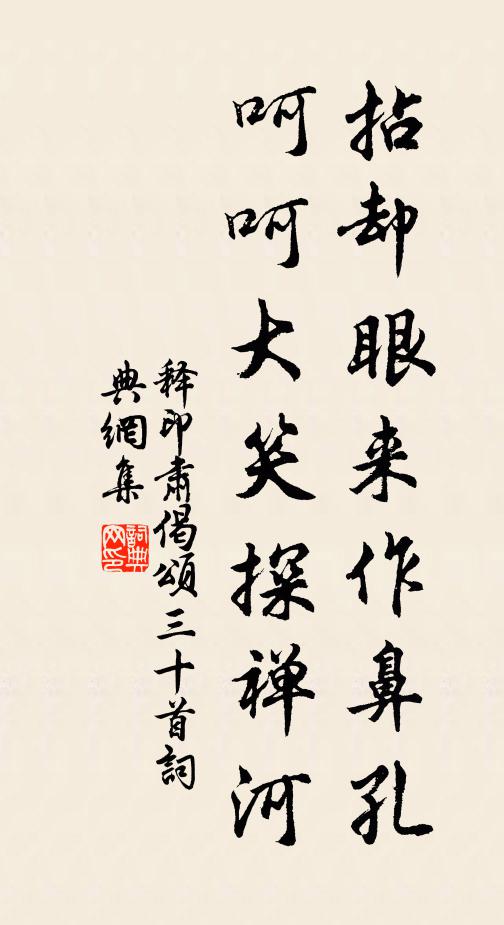 拈却眼来作鼻孔
呵呵大笑探禅河
释印肃偈頌三十首詞
典網集
詞典
网印